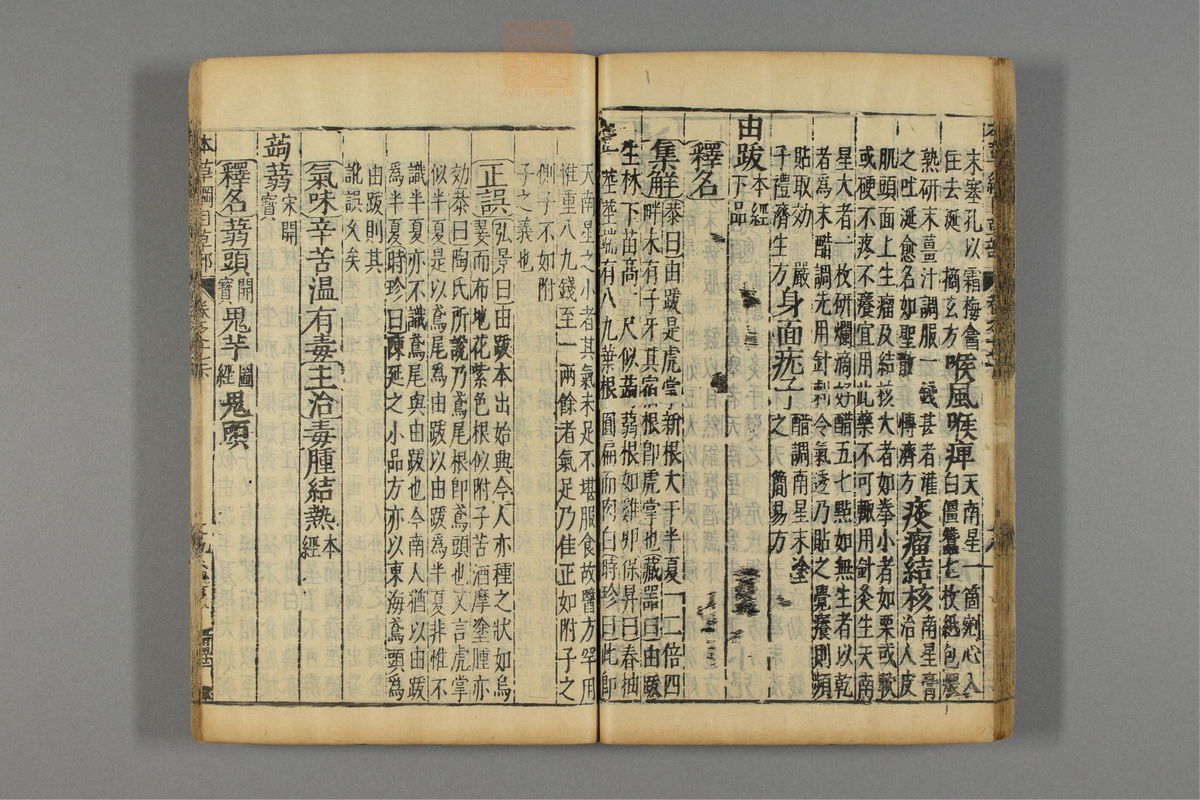 末塞孔以霜梅含
住去涎 摘玄方 喉風喉痺 天南星一箇剜心入白僵蠶七枚紙包煨
熟研末薑汁調服一錢甚者灌
之吐涎愈名如聖散 博濟方 痰瘤結核 南星膏治人皮
肌頭面上生瘤及結核大者如拳小者如栗或軟
或硬不疼不癢宜用此藥不可輒用針灸生天南
星大者一枚研爛滴好醋五七點如無生者以乾
者爲末醋調先用針刺令氣透乃貼之覺癢則頻
貼取効 嚴子禮濟生方 身面疣子 醋調南星末塗之 簡易方
由跋 本經下品
釋名
集解 恭曰由跋是虎掌新根大于半夏一二倍四畔未有子牙其宿根卽虎掌也藏器曰由跋
生林下苗高一尺似蒟蒻根如雞卵保昇曰春抽
一莖莖端有八九葉根圓扁而肉白時珍曰此卽
天南星之小者其氣未足不堪服食故醫方罕用
惟重八九錢至一兩餘者氣足乃佳正如附子之
側子不如附
子之義也
正誤 弘景曰由跋本出始興今人亦種之狀如烏翣而布地花紫色根似附子苦酒摩塗腫亦
効恭曰陶氏所說乃鳶尾根卽鳶頭也又言虎掌
似半夏是以鳶尾爲由跋以由跋爲半夏非惟不
識半夏亦不識鳶尾與由跋也今南人猶以由跋
爲半夏時珍曰陳延之小品方亦以東海鳶頭爲
由跋則其
訛誤久矣
氣味 辛苦溫有毒 主治 毒腫結熱 本經
蒟蒻 宋開寶
釋名 蒻頭 開寶 鬼芋 圖經 鬼頭
本草綱目草部